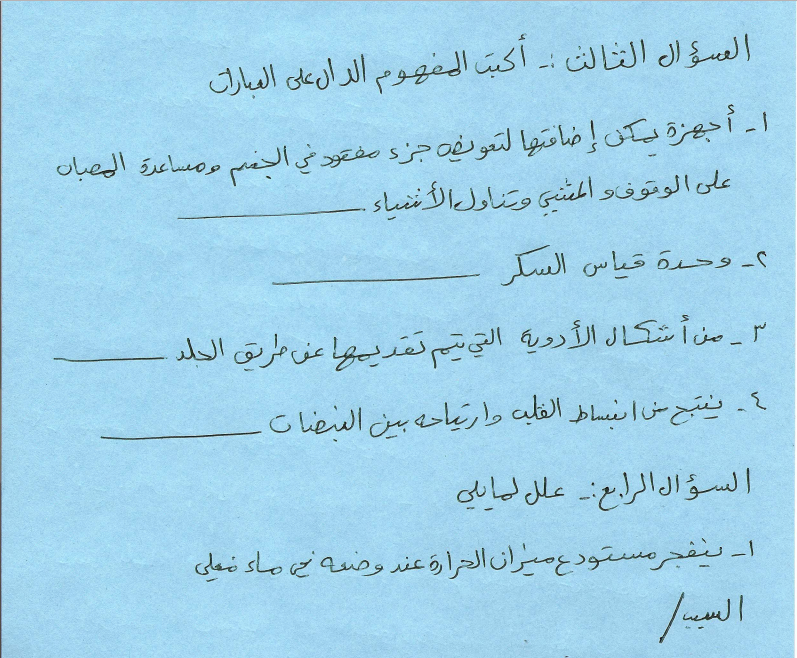 السؤال الثالث :- أكتب المفهوم الدال على العبارات
١- أجهزة يمكن إضافتها لتعويض جزء مفقود في الجسم ومساعدة المصاب
على الوقوف و المشي وتناول الأشياء ــــــــــ
٢- وحدة قياس السكر ــــــــــ
٣- من أشكال الأدوية التي يتم تقديمها عن طريق الجلد ــــــــــ
٤- ينتج من انبساط القلب وارتياحه بين النبضات ــــــــــ
السؤال الرابع :- علل لمايلي
١- ينفجر مستودع ميزان الحرارة عند وضعه في ماء مغلي
السبب /